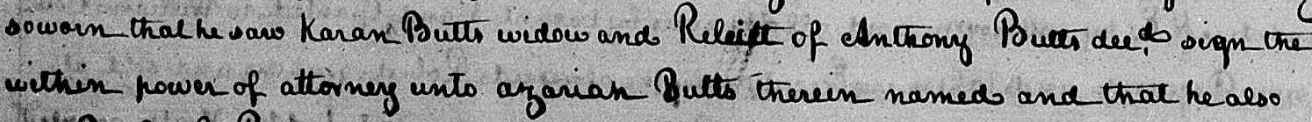 soworn that he saw Karan Butts widow and Releict of Anthony Butts decd sign the
within power of attorney unto azariah Butts therein named and that he also